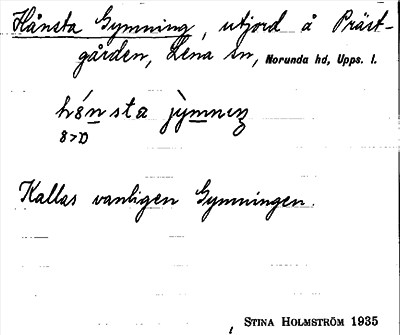 Hånsta Gymning, utjord å Präst-
gården, Lena sn, Norunda hd, Upps. l.
Kallas vanligen Gymningen.
STINA HOLMSTRÖM 1935